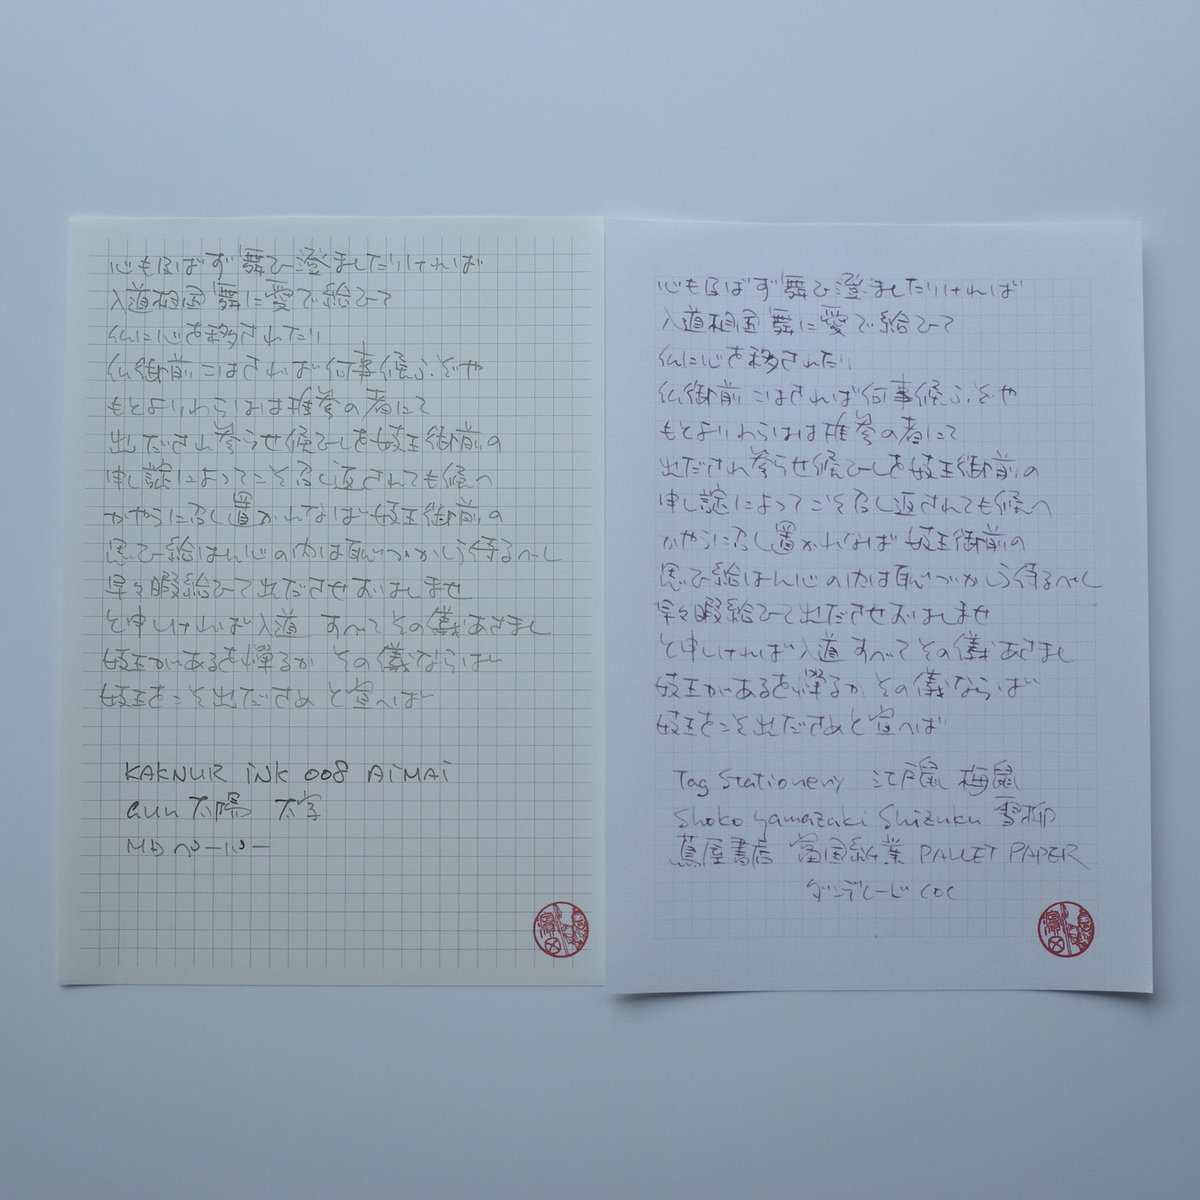 心も及ばず舞ひ澄ましたりければ
入道相国舞に愛で給ひて
仏に心を移されたり
仏御前こはされば何事候ふぞや
もとよりわらはは推参の者にて
出だされ参らせ候ひしを妓王御前の
申し諚によつてこそ召し返されても候へ
かやうに召し置かれなば妓王御前の
思ひ給はん心の内は恥づかしう侍るべし
早々暇給ひて出ださせおはしませ
と申しければ入道 すべてその儀あさまし
妓王があるを憚るか その儀ならば
妓王をこそ出ださめ と宣へば
KAKNUR INK 008 AIMAI
aun 太陽 太字
MDペーパー
心も及ばず舞ひ澄ましたりければ
入道相国舞に愛で給ひて
仏に心を移されたり
仏御前こはされば何事候ふぞや
もとよりわらはは推参の者にて
出だされ参らせ候ひしを妓王御前の
申し諚によつてこそ召し返されても候へ
かやうに召し置かれなば妓王御前の
思ひ給はん心の内は恥づかしう侍るべし
早々暇給ひて出ださせおはしませ
と申しければ入道 すべてその儀あさまし
妓王があるを憚るか その儀ならば
妓王をこそ出ださめと宣へば
Tag Stationery 江戸鼠 梅鼠
Shoko Yamazaki Shizuku 雪柳
蔦屋書店 富国紙業 PALLET PAPER
ダンデレードCOC